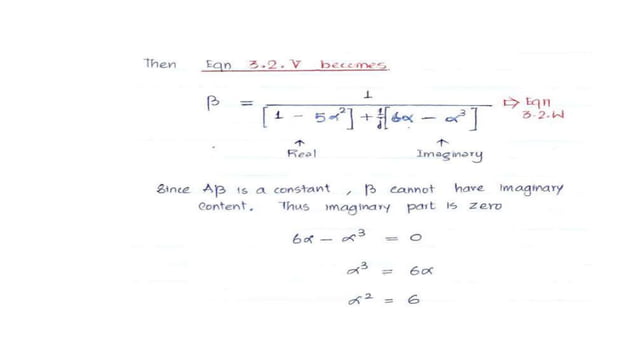 Then Eqn 3.2.V becomes
β = 1 / [1 - 5α²] + 1/j [6α - α³] ⇒ Eqn 3.2.W
↑ Real ↑ Imaginary
Since Aβ is a constant, β cannot have imaginary
content. Thus imaginary part is zero
6α - α³ = 0
α³ = 6α
α² = 6